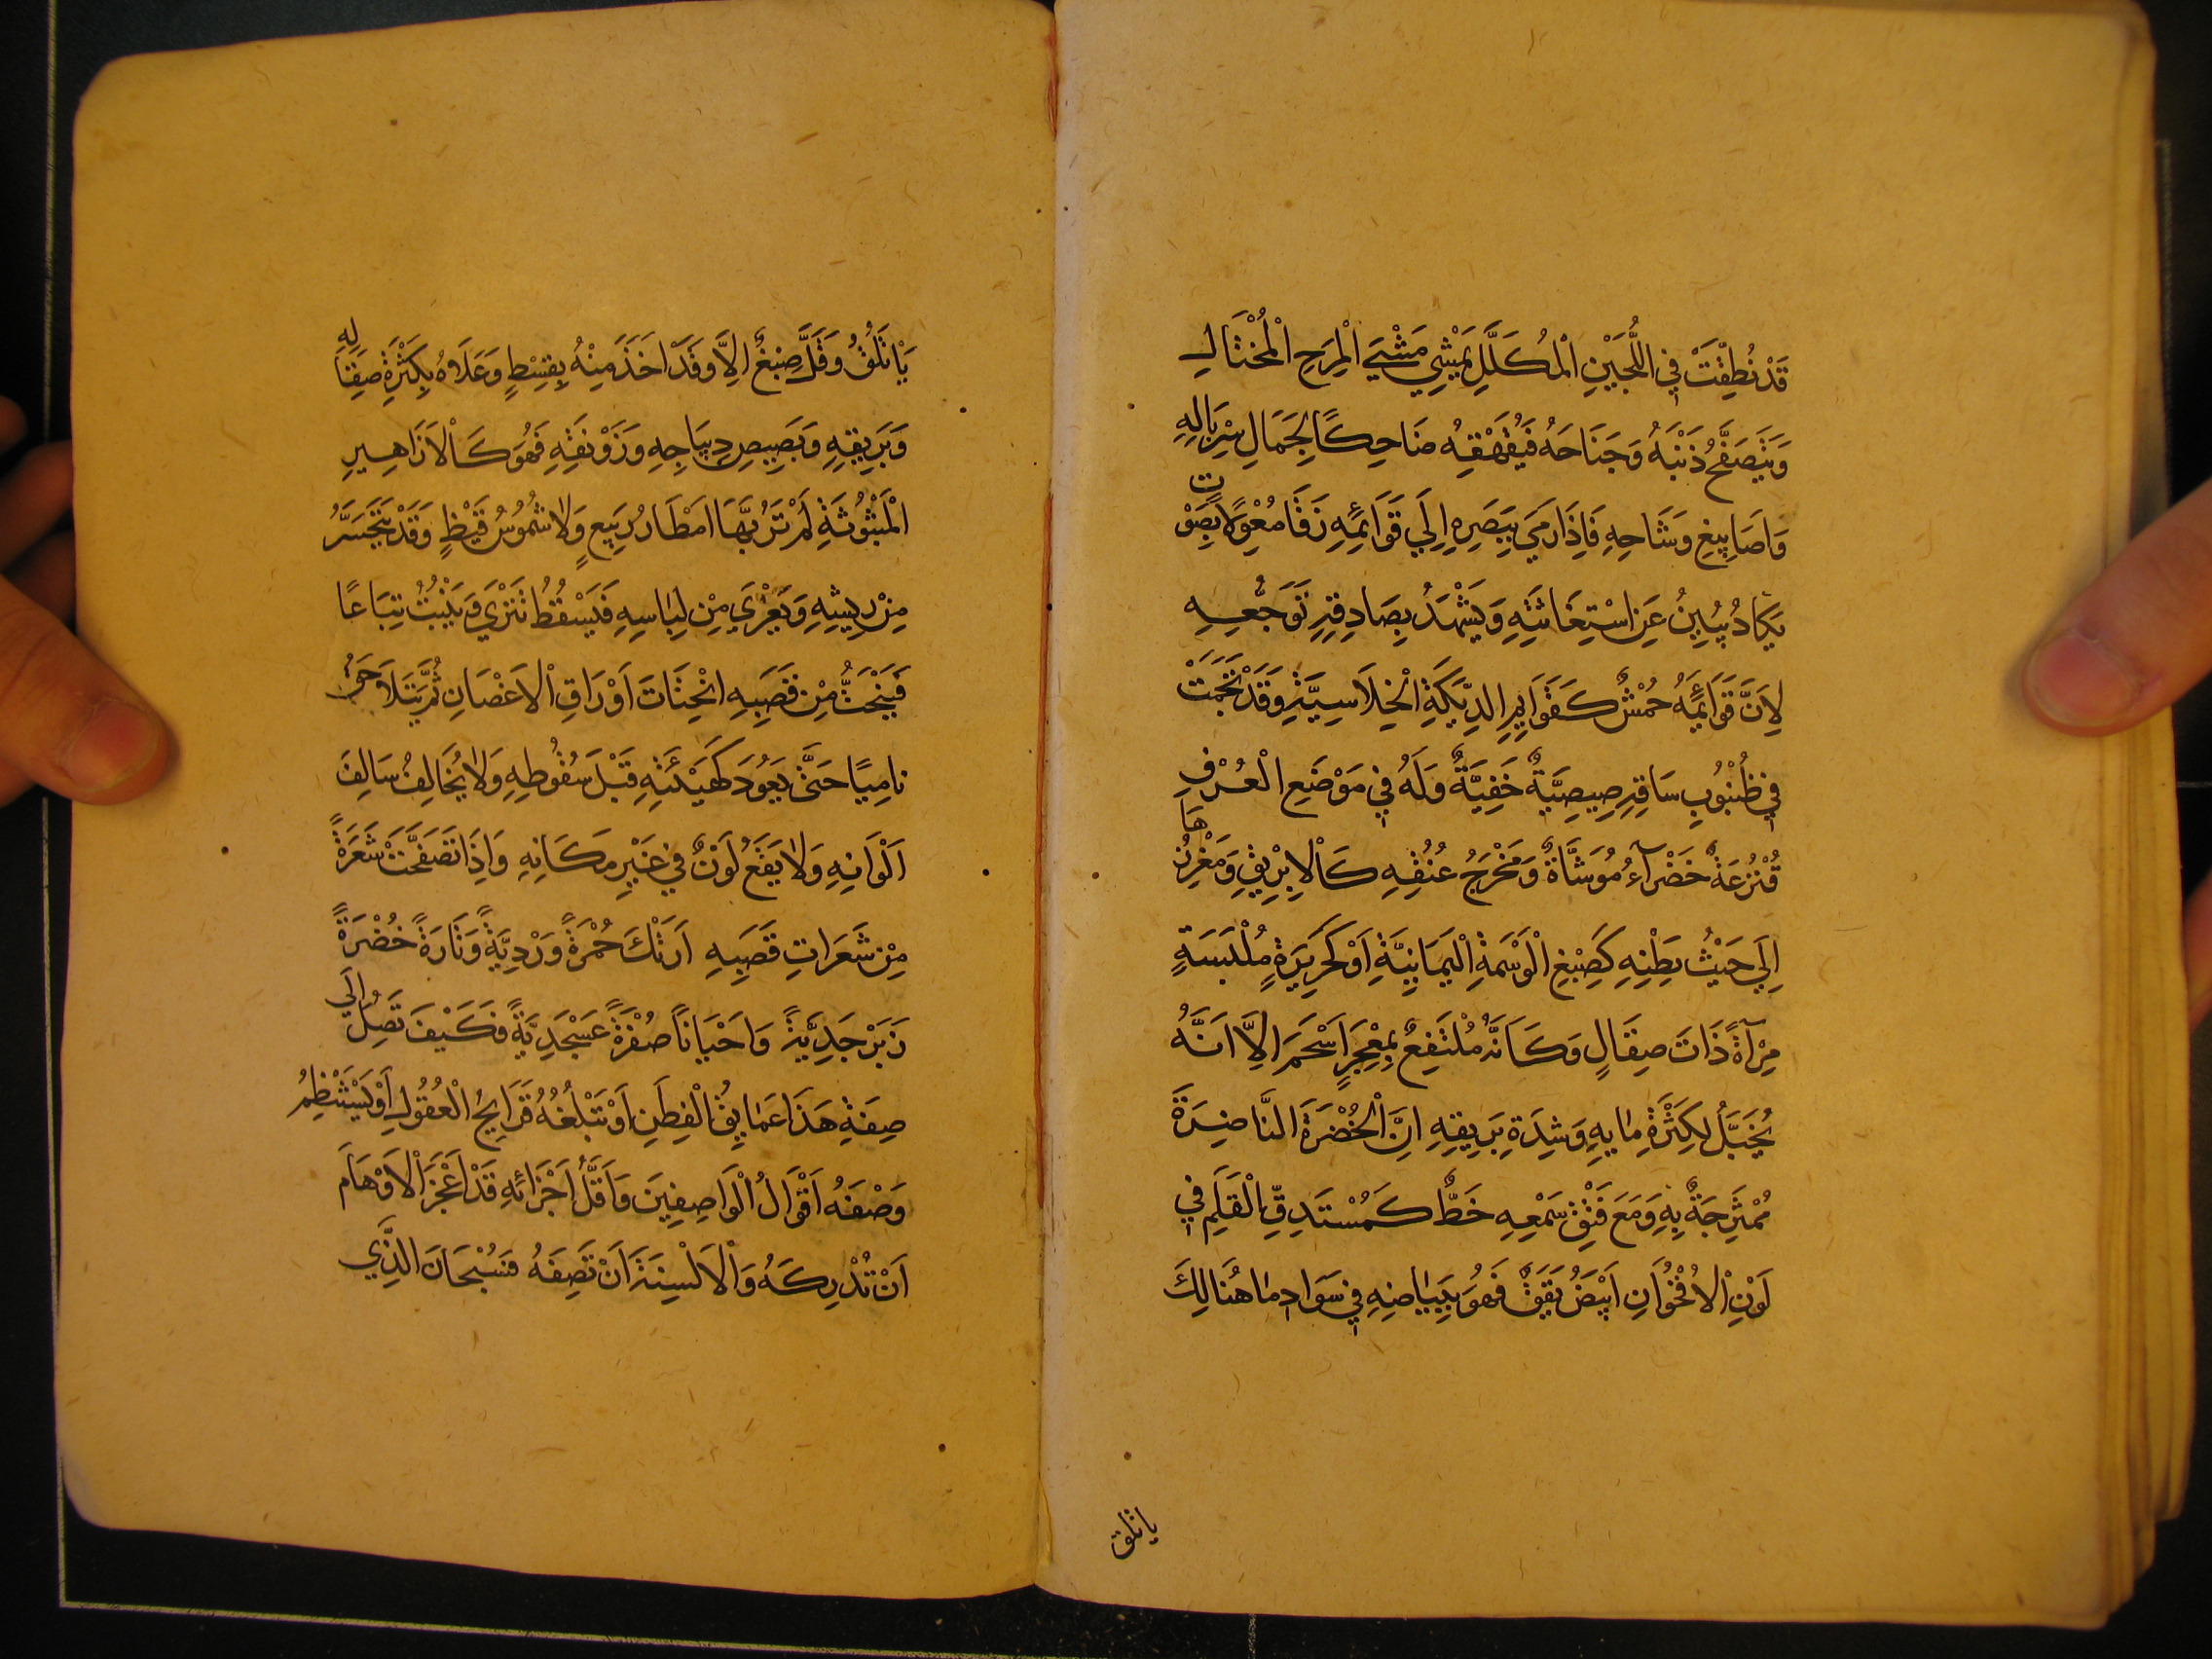 قَدْ نُطِّقَتْ فِي اللُّجَيْنِ الْمُكَلَّلِ يَمْشِي مَشْيَ الْمَرِحِ الْمُخْتَالِ
وَيَتَصَفَّحُ ذَنَبَهُ وَجَنَاحَهُ فَيُقَهْقِهُ ضَاحِكًا لِجَمَالِ سِرْبَالِهِ
وَاَصَابِيغِ وِشَاحِهِ فَاِذَا رَمَي بِبَصَرِهِ اِلَي قَوَائِمِهِ زَقَا مُعْوِلًا بِصَوْتٍ
يَكَادُ يُبِينُ عَنِ اسْتِغَاثَتِهِ وَيَشْهَدُ بِصَادِقِ تَوَجُّعِهِ
لِاَنَّ قَوَائِمَهُ حُمْشٌ كَقَوَائِمِ الدِّيَكَةِ الْخِلَاسِيَّةِ وَقَدْ نَجَمَتْ
فِي ظُنْبُوبِ سَاقِهِ صِيصِيَّةٌ خَفِيَّةٌ وَلَهُ فِي مَوْضَعِ الْعُرْفِ
قُنْزُعَةٌ خَضْرَآءُ مُوَشَّاةٌ وَمَخْرَجُ عُنُقِهِ كَالْاِبْرِيقِ وَمَغْرِزُهَا
اِلَي حَيْثُ بَطْنِهِ كَصِبْغِ الْوَسْمَةِ الْيَمَانِيَّةِ اَوْ كَحَرِيرَةٍ مُلْبَسَةٍ
مِرْآةً ذَاتَ صِقَالٍ وَكَاَنَّهُ مُلْتَفِعٌ بِمِعْجَرٍ اَسْحَمَ اِلَّا اَنَّهُ
يُخَيَّلُ لِكَثْرَةِ مَايِهِ وَشِدَةِ بَرِيقِهِ اَنَّ الْخُضْرَةَ النَّاضِرَةَ
مُمْتَزِجَةٌ بِهِ وَمَعَ فَتْقِ سَمْعِهِ خَطٌّ كَمُسْتَدِقِّ الْقَلَمِ فِي
لَوْنِ الْاُقْحُوَانِ اَبْيَضُ يَقَقٌ فَهُوَ بِبَيَاضِهِ فِي سَوَادِ مَا هُنَالِكَ
ياتلق
يَاْتَلِقُ وَقَلَّ صِبْغٌ اِلَّا وَقَدْ اَخَذَ مِنْهُ بِقِسْطٍ وَعَلَاهُ بِكَثْرَةِ صِقَالِهِ
وَبَرِيقِهِ وَبَصِيصِ دِيبَاجِهِ وَرَوْنَقِهِ فَهُوَ كَالْاَزَاهِيرِ
الْمَبْثُوثَةِ لَمْ تُرَبِّهَا اَمْطَارُ رَبِيعٍ وَلَا شُمُوسُ قَيْظٍ وَقَدْ يَتَحَسَّرُ
مِنْ رِيشِهِ وَيَعْرَي مِنْ لِبَاسِهِ فَيَسْقُطُ تَتْرَي وَيَنْبُتُ تِبَاعًا
فَيَنْحَتُّ مِنْ قَصَبِهِ انْحِتَاتَ اَوْرَاقِ الْاَغْصَانِ ثُمَّ يَتَلَاحَقُ
نَامِيًا حَتَّى يَعُودَ كَهَيْئَتِهِ قَبْلَ سُقُوطِهِ وَلَا يُخَالِفُ سَالِفَ
اَلْوَانِهِ وَلَا يَقَعُ لَوْنٌ فِي غَيْرِ مَكَانِهِ وَاِذَا تَصَفَّحْتَ شَعَرَةً
مِنْ شَعَرَاتِ قَصَبِهِ اَرَتْكَ حُمْرَةً وَرْدِيَّةً وَتَارَةً خُضْرَةً
زَبَرْجَدِيَّةً وَاَحْيَانًا صُفْرَةً عَسْجَدِيَّةً فَكَيْفَ تَصِلُ اِلَي
صِفَةِ هَذَا عَمَايِقُ الْفِطَنِ اَوْ تَبْلُغُهُ قَرَايِحُ الْعُقُولِ اَوْ يَسْتَنْظِمُ
وَصْفَهُ اَقْوَالُ الْوَاصِفِينَ وَاَقَلُّ اَجْزَائِهِ قَدْ اَعْجَزَ الْاَوْهَامَ
اَنْ تُدْرِكَهُ وَالْاَلْسِنَةَ اَنْ تَصِفَهُ فَسُبْحَانَ الَّذِي